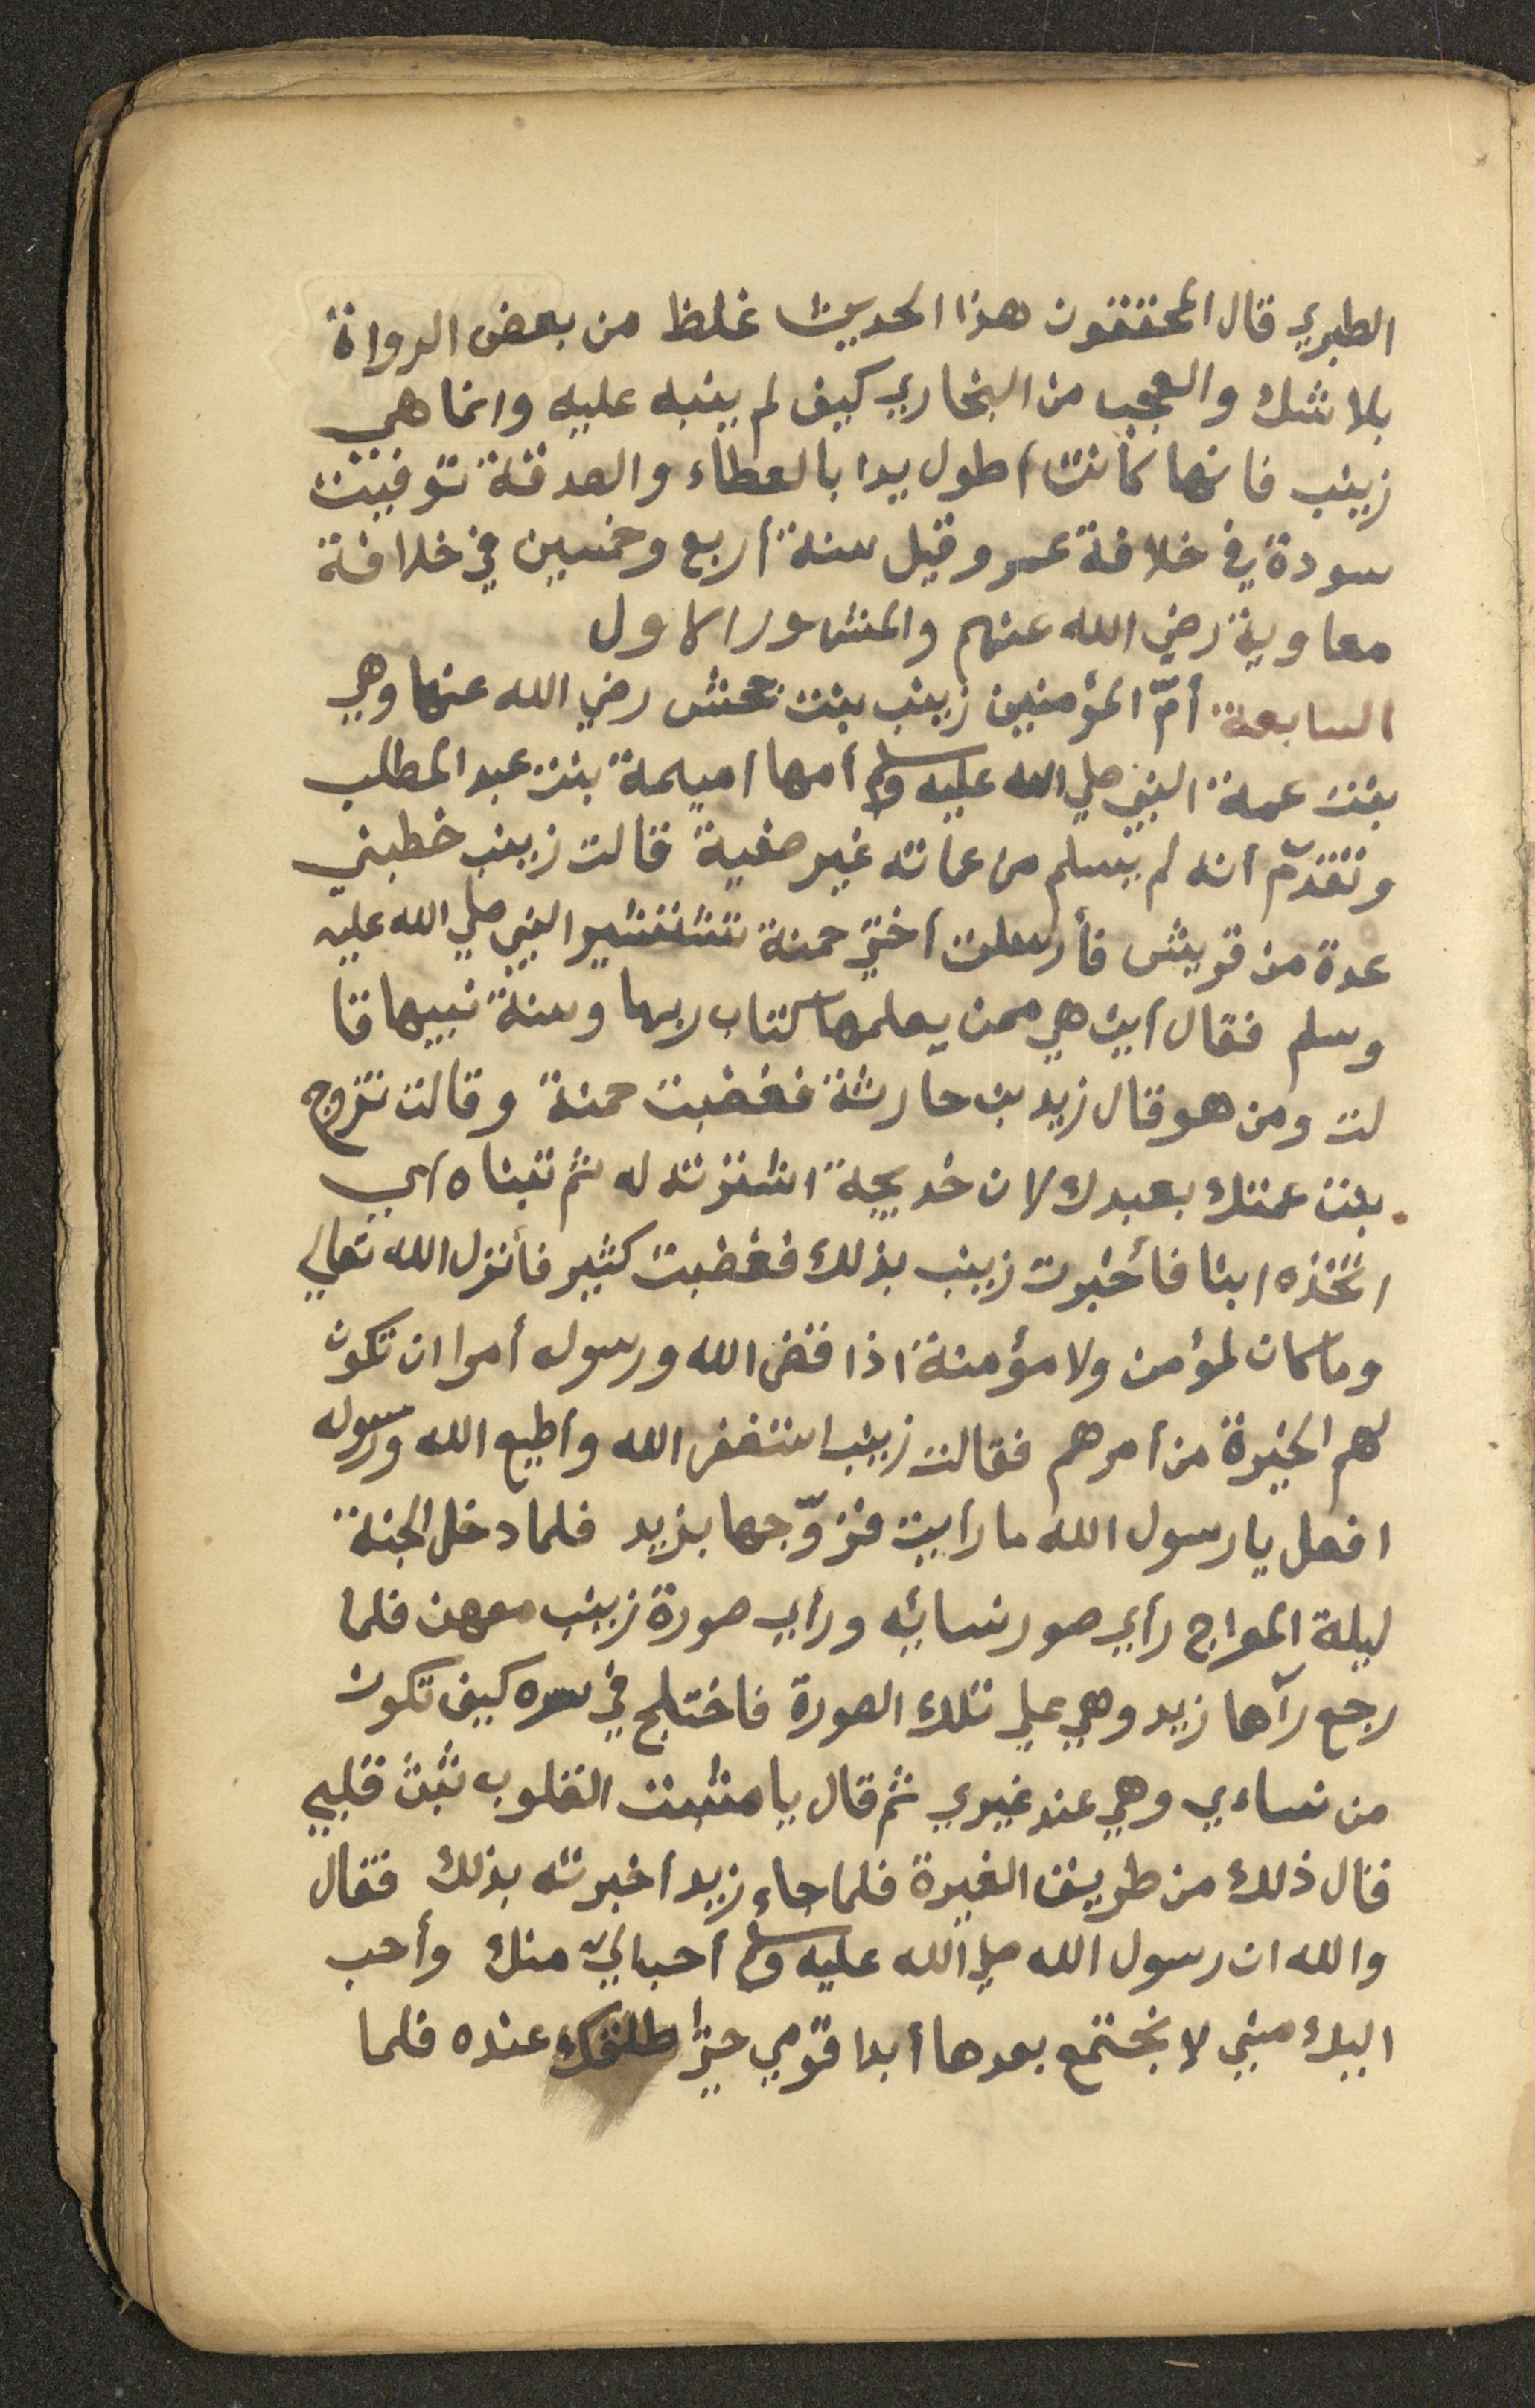 الطبري قال المحققون هذا الحديث غلط من بعض الرواة
بلا شك والعجب من البخاري كيف لم ينبه عليه وانما هي
زينب فانها كانت اطول يدا بالعطاء والصدقة توفيت
سودة في خلافة عمر وقيل سنة أربع وخمسين في خلافة
معاوية رضي الله عنهم والمشهور الاول
السابعة أمّ المؤمنين زينب بنت جحش رضي الله عنها وهي
بنت عمة النبي صلي الله عليه وسلم أمها اميمة بنت عبد المطلب
وتقدّم أنه لم يسلم من عماته غير صفية قالت زينب خطبني
عدة من قريش فأرسلت اختي حمنة تستشير النبي صلي الله عليه
وسلم فقال اين هي ممن يعلمها كتاب ربها وسنة نبيها قا
لت ومن هو قال زيد بن حارثة فغضبت حمنة وقالت تتزوج
بنت عمتك بعبدك لان خديجة اشترته له ثم تبناه اي
اتخذه ابنا فأخبرت زينب بذلك فغضبت كثير فأنزل الله تعالي
وما كان لمؤمن ولا مؤمنة اذا قضي الله ورسوله أمرا ان تكون
لهم الخيرة من أمرهم فقالت زينب استغفر الله وأطيع الله ورسوله
افعل يا رسول الله ما رأيت فزوّجها بزيد فلما دخل الجنة
ليلة المعراج رأي صور نسائه ورأي صورة زينب معهن فلما
رجع رآها زيد وهي علي تلك الصورة فاختلج في سره كيف تكون
من نساءي وهي عند غيري ثم قال يا مثبت القلوب ثبت قلبي
قال ذلك من طريق الغيرة فلما جاء زيد اخبرته بذلك فقال
والله ان رسول الله صلي الله عليه وسلم أحب اليّ منك وأحب
اليك مني لا نجتمع بعدها أبدا قومي حتي اطلقك عنده فلما